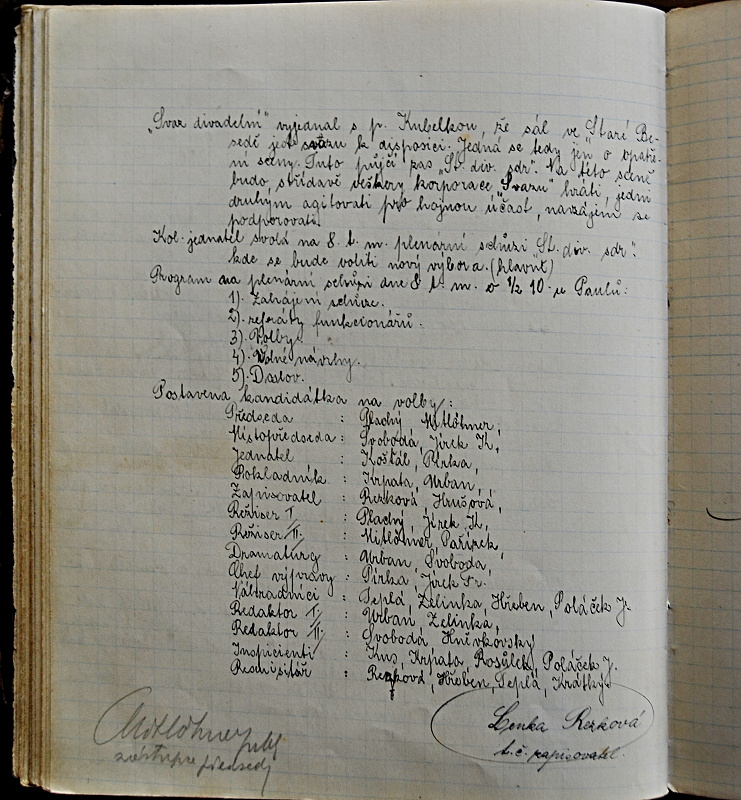 „Svaz divadelní“ vyjednal s p. Kubelkou, že sál ve „Staré Be-
sedě jest svazu k disposici. Jedná se tedy jen o opatře-
ní sceny. Tuto půjčí zas „St. div. sdr“. Na této sceně
budo, střídavě veškery korporace „Svazu“ hráti, jedni
druhým agitovati pro hojnou účast, navzájem se
podporovati.
Kol. jednatel svolá na 8. t. m. plenární schůzi „St. div. sdr“.
kde se bude voliti nový výbor a. (hlavně)
Program na plenární schůzi dne 8 t. m. o ½ 10. u Paulů:
1). Zahájení schůze.
2). referáty funkcionářů.
3). Volby.
4). Volné návrhy.
5). Doslov.
Postavena kandidátka na volby:
Předseda : Plachý, Mitlöhner,
Místopředseda : Svoboda, Jírek K,
Jednatel : Koštál, Pirka,
Pokladník : Krpata, Urban,
Zapisovatel : Rezková, Hrušová,
Režiser I. : Plachý, Jírek K,
Režiser II. : Mitlöhner, Pařízek,
Dramaturg : Urban, Svoboda,
Chef výpravy : Pirka, Jírek Fr.
Náhradníci : Teplá, Zelinka, Hřeben, Poláček J.
Redaktor I. : Urban, Zelinka,
Redaktor II. : Svoboda, Hněvkovský
Inspicienti : Kus, Krpata, Rosůlek, Poláček J.
Rekvisitář : Rezková, Hřeben, Teplá, Krátký.
Mitlöhner
zástupce předsedy
Lenka Rezková
t. č. zapisovatel.